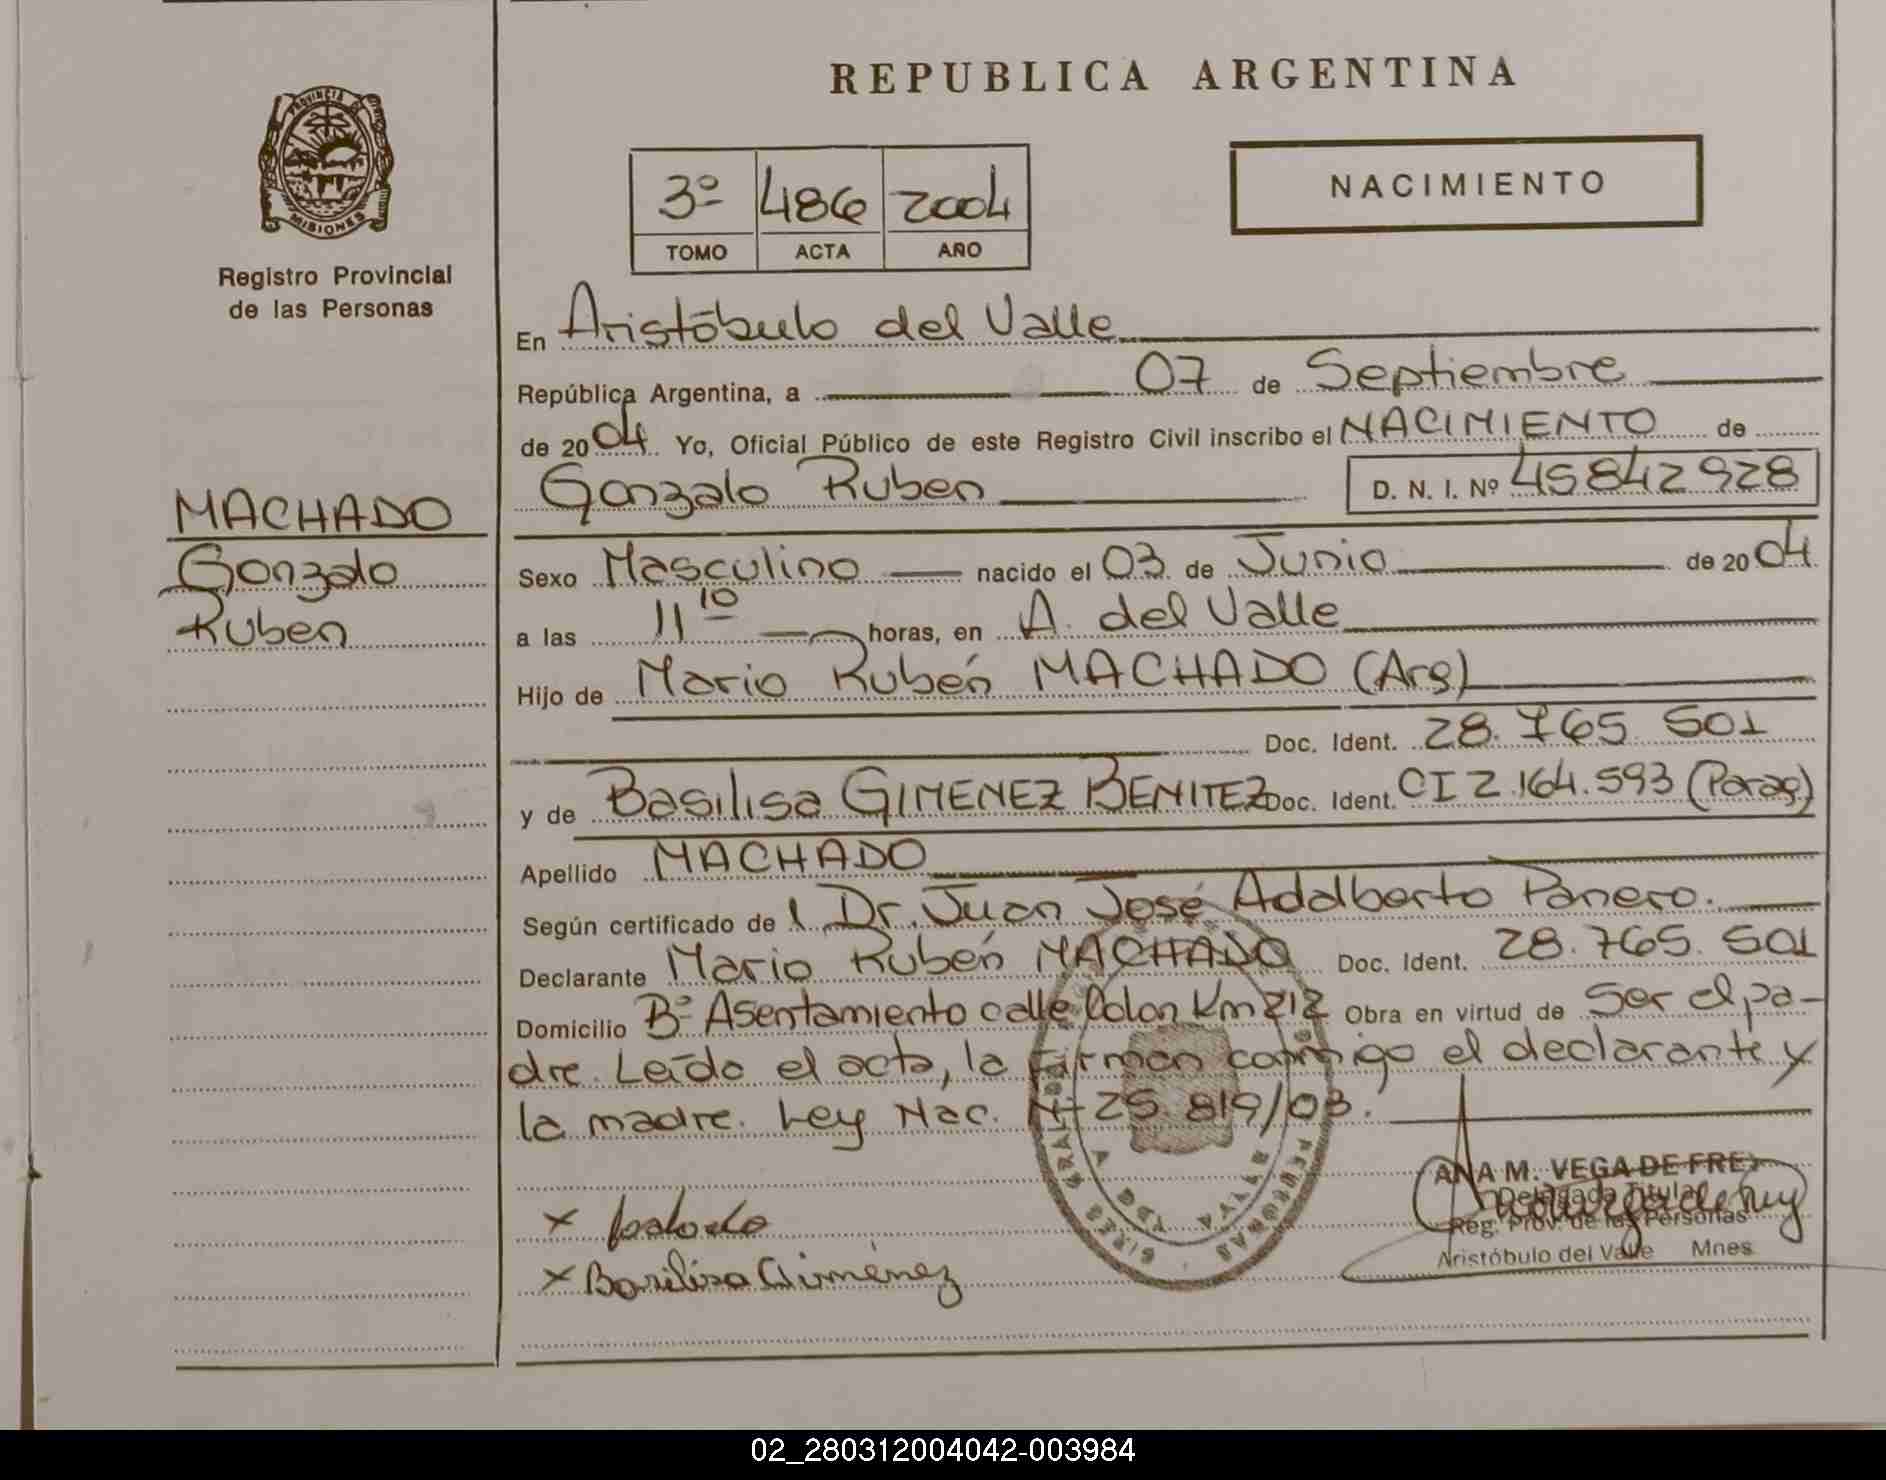 REPUBLICA ARGENTINA
PROVINCIA DE
MISIONES
Registro Provincial
de las Personas
3º 486 2004
TOMO ACTA AÑO
NACIMIENTO
En Aristóbulo del Valle
República Argentina, a 07 de Septiembre
de 2004. Yo, Oficial Público de este Registro Civil inscribo el NACIMIENTO de
Gonzalo Ruben D. N. I. Nº 45842928
MACHADO
Gonzalo
Ruben
Sexo Masculino nacido el 03 de Junio de 2004
a las 11 10 horas, en A. del Valle
Hijo de Mario Rubén MACHADO (Arg)
Doc. Ident. 28.765.501
y de Basilisa GIMENEZ BENITEZ Doc. Ident. CI 2.164.593 (Parag)
Apellido MACHADO
Según certificado de l Dr. Juan José Adalberto Panero.
Declarante Mario Rubén MACHADO Doc. Ident. 28.765.501
Domicilio Bº Asentamiento calle Colon Km 212 Obra en virtud de Ser el pa-
dre. Leída el acta, la firman conmigo el declarante y
la madre. Ley Nac. Nº 25.819/03.
ANA M. VEGA DE FREY
Delegada Titular
Reg. Prov. de las Personas
Aristóbulo del Valle Mnes
x
x Basilisa Giménez
02_280312004042-003984